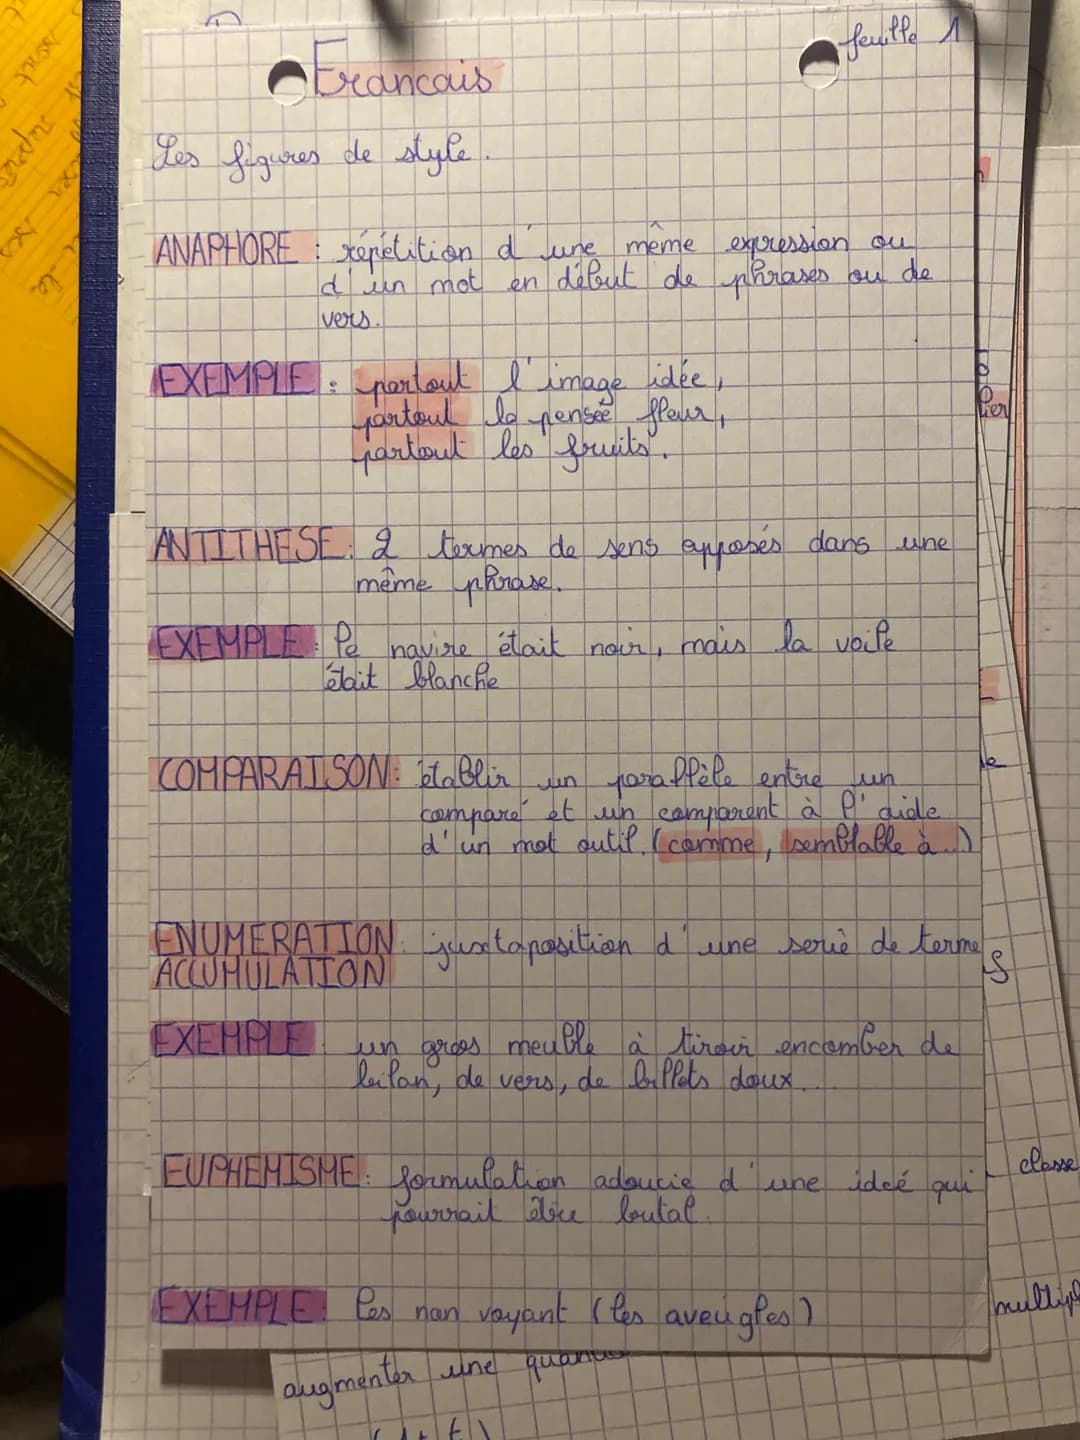 feuille 1
Francais
Les figures de style.
ANAPHORE : répétition d'une même expression ou
d'un mot en début de phrases ou de
vers.
EXEMPLE : partout l'image idée,
partout la pensée fleur,
partout les fruits.
ANTITHESE : 2 termes de sens opposés dans une
même phrase.
EXEMPLE : le navire était noir, mais la voile
était blanche
COMPARAISON : établir un parallèle entre un
comparé et un comparent à l'aide
d'un mot outil. (comme, semblable à...)
ENUMERATION : juxtaposition d'une serie de termes
ACCUMULATION
EXEMPLE : un gros meuble à tiroir encomber de
bilan, de vers, de billets doux...
EUPHEMISME : formulation adoucie d'une idée qui
pourrait être brutal.
EXEMPLE : les non voyant (les aveugles)
classe
augmenter une